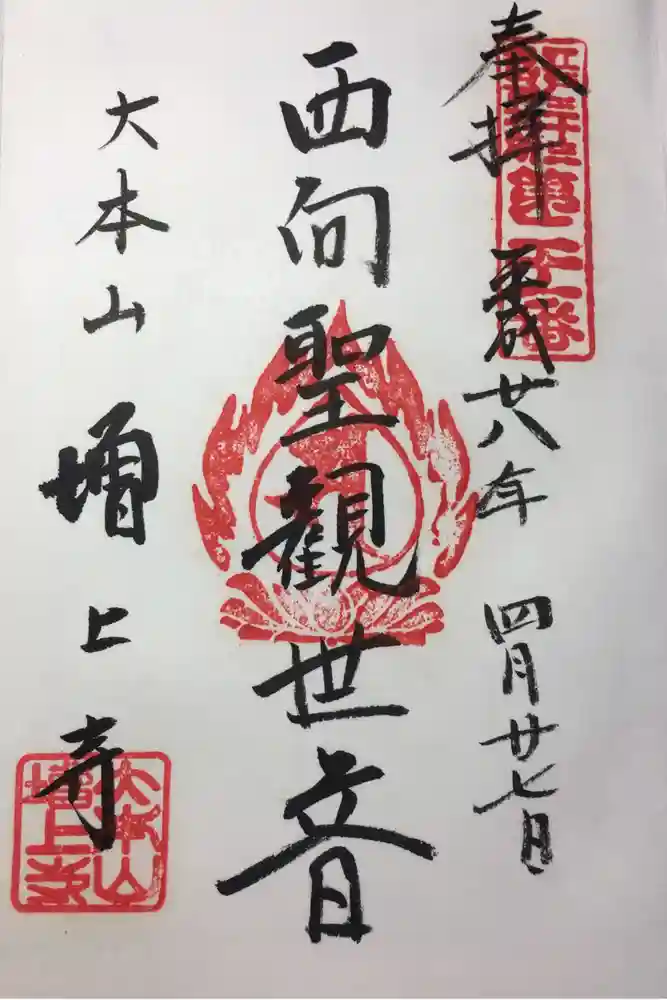 奉拝 平成廿八年 四月廿七日
西向聖観世音
大本山 増上寺
大本山
増上寺